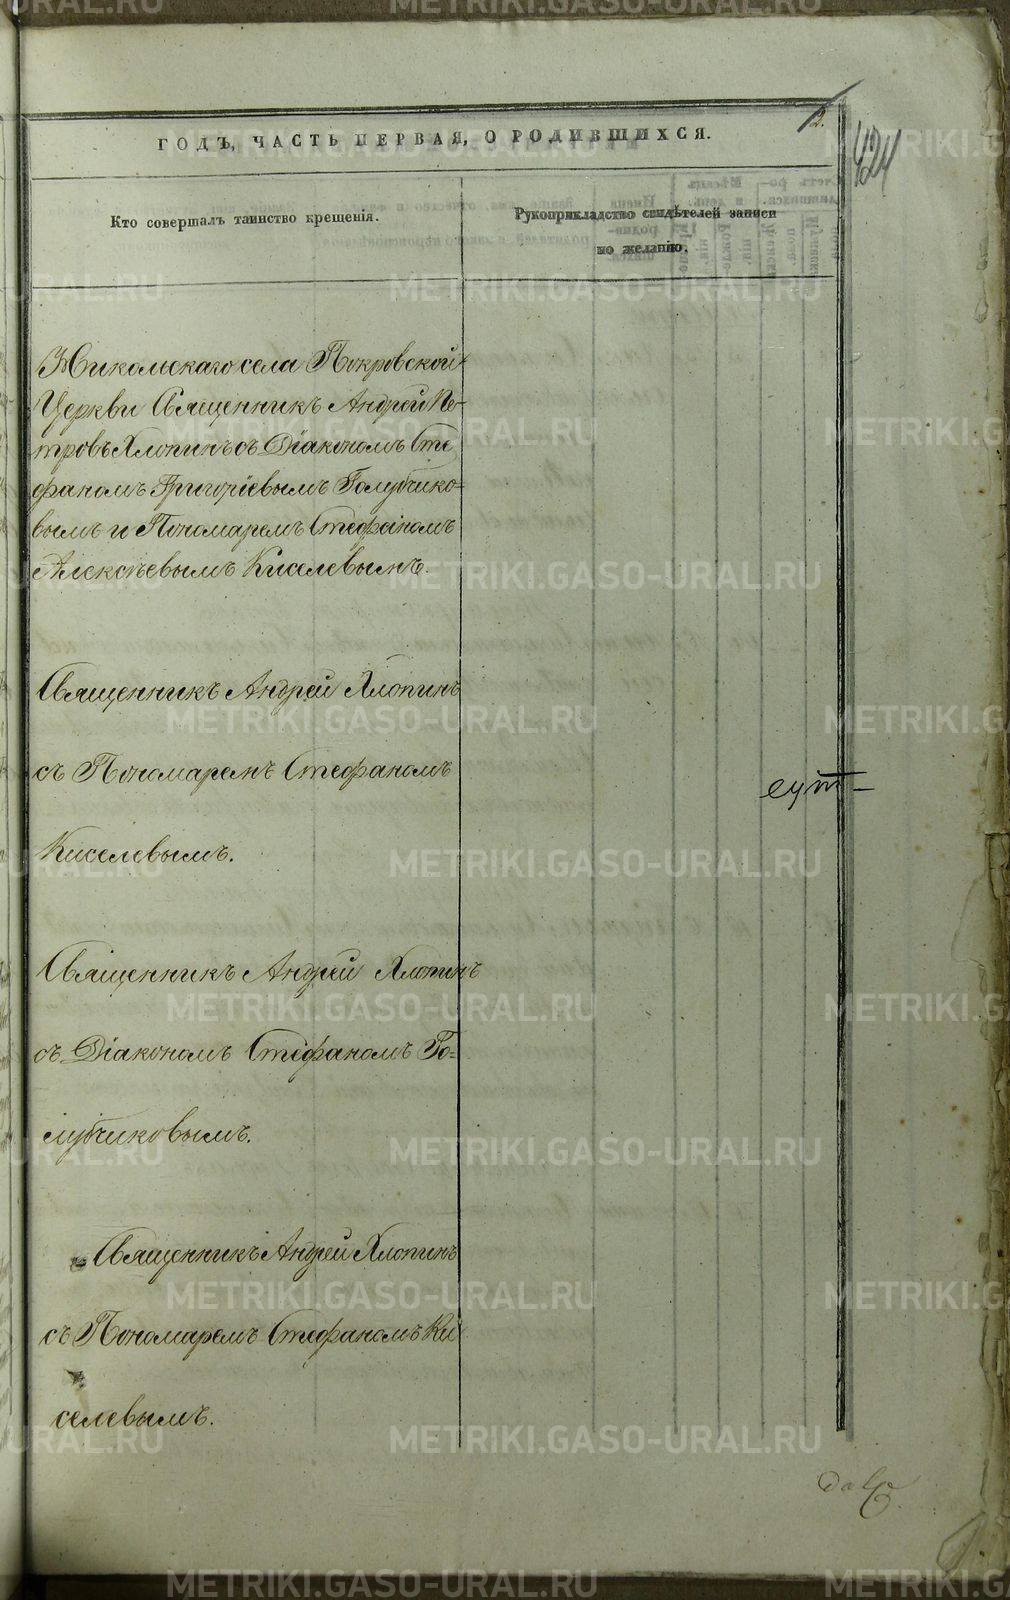 2.
424
ГОДЪ, ЧАСТЬ ПЕРВАЯ, О РОДИВШИХСЯ.
Кто совершалъ таинство крещенія.
Рукоприкладство свидѣтелей записи
по желанію.
Никольскаго села Покровской
Церкви Священникъ Андрей Пе-
тровъ Хлопинъ съ Діакономъ Сте
фаномъ Григоріевымъ Голубчико=
вымъ и Пономаремъ Стефаномъ
Алексѣевымъ Киселевымъ.
Священникъ Андрей Хлопинъ
съ Пономаремъ Стефаномъ
Киселевымъ.
Священникъ Андрей Хлопинъ
съ Діакономъ Стефаномъ Го=
лубчиковымъ.
Священникъ Андрей Хлопинъ
съ Пономаремъ Стефаномъ Ки
селевымъ.
METRIKI.GASO-URAL.RU